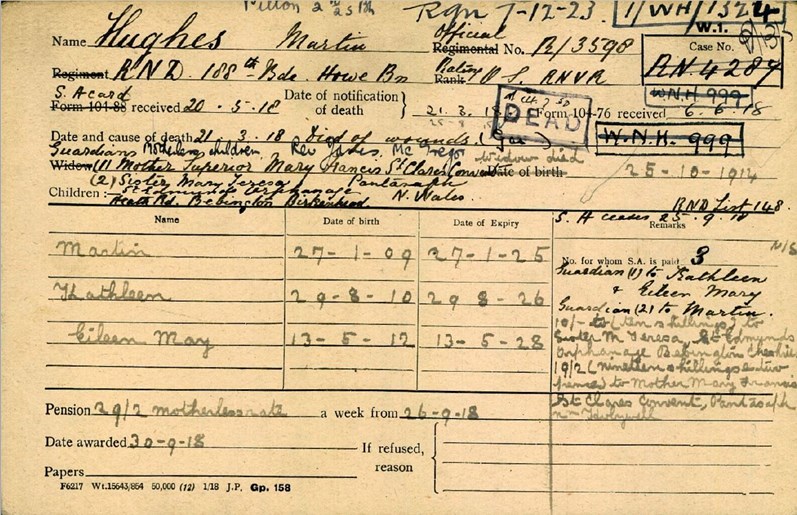 Rgn 7-12-23. 1/WH/1324
W.1.
Name Hughes Martin Official Regimental No. R/3598 Case No.
R.N. 4287
Regiment R.N.D. 188th Bde. Howe Bn Rating Rank O.S. RNVR
W.N.H 999
S.A card Form 104-88 received 20-5-18 Date of notification of death } 21.3.18 DEAD Form 104-76 received 6-6-18
W.N.H. 999
Date and cause of death 21-3-18 Died of wounds (Gas) widow died
Guardians Motherless children Rev James
Widow (1) Mother Superior Mary Francis St Clares Convent Date of birth 25-10-1914
(2) Sister Mary Teresa Pantasaph
Children: St Edmunds Orphanage N. Wales
Heath Rd. Bebington Birkenhead RND List 148.
S.A ceases 25-9-18
Name Date of birth Date of Expiry Remarks
Martin 27-1-09 27-1-25
No. for whom S.A. is paid 3
Kathleen 29-8-10 29-8-26
Eileen May 13-5-12 13-5-28
Guardian (1) to Kathleen
& Eileen Mary
Guardian (2) to Martin.
10/- to (ten shillings) to
Sister M Teresa, St Edmunds
Orphanage Bebington Cheshire
19/2 (nineteen shillings & two
pence) to Mother Mary Francis
St Clares Convent, Pantasaph
nr Holywell
Pension 29/2 motherless rate a week from 26-9-18
Date awarded 30-9-18 If refused, reason
Papers
F6217 Wt.15643/854 50,000 (12) 1/18 J.P. Gp. 158